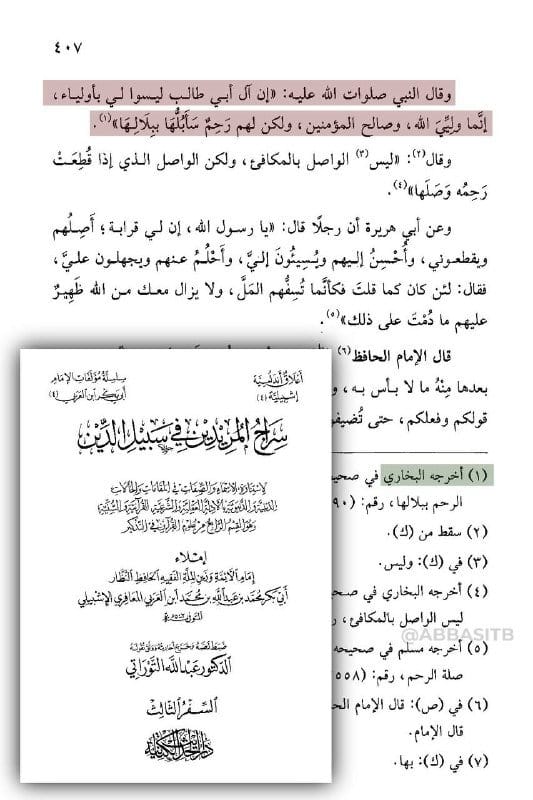 ٤٠٧
وقال النبي صلوات الله عليه: «إن آل أبي طالب ليسوا لي بأولياء،
إنَّما ولِيِّيَ الله، وصالح المؤمنين، ولكن لهم رَحِمٌ سَأَبُلُّهَا بِبِلَالِهَا»(١).
وقال(٢): «ليس(٣) الواصل بالمكافئ، ولكن الواصل الذي إذا قُطِعَتْ
رَحِمُه وَصَلَها»(٤).
وعن أبي هريرة أن رجلًا قال: «يا رسول الله، إن لي قرابة؛ أَصِلُهم
ويقطعوني، وأُحْسِنُ إليهم ويُسِيئُونَ إليَّ، وأَحْلُمُ عنهم ويجهلون عليَّ،
فقال: لئن كان كما قلتَ فكأنَّما تُسِفُّهم المَلَّ، ولا يزال معك من الله ظَهِيرٌ
عليهم ما دُمْتَ على ذلك»(٥).
قال الإمام الحافظ(٦)
بعدها مِنْهُ ما لا بأس به، و
قولكم وفعلكم، حتى تُضيفو
(١) أخرجه البخاري في صحيح
الرحم ببلالها، رقم: (٩٠
(٢) سقط من (ك).
(٣) في (ك): وليس.
(٤) أخرجه البخاري في صح
ليس الواصل بالمكافئ، رقم
(٥) أخرجه مسلم في صحيحه
صلة الرحم، رقم: (٥٥٨
(٦) في (ص): قال الإمام الحا
قال الإمام.
(٧) في (ك): بها.
سلسلة مؤلفات الإمام
أبي بكر ابن العربي (٤)
أعلاق أندلسية
إشبيلية (٤)
سراج المريدين في سبيل الدين
وهو القسم الرابع من علوم القرآن في التذكير
إملاء
إمام الأئمة وزين الملة الفقيه الحافظ النظار
أبي بكر محمد بن عبد الله بن محمد ابن العربي المعافري الإشبيلي
الدكتور عبد الله التوراتي
السفر الثالث
دار الحديث الكتانية
@ABBASITB